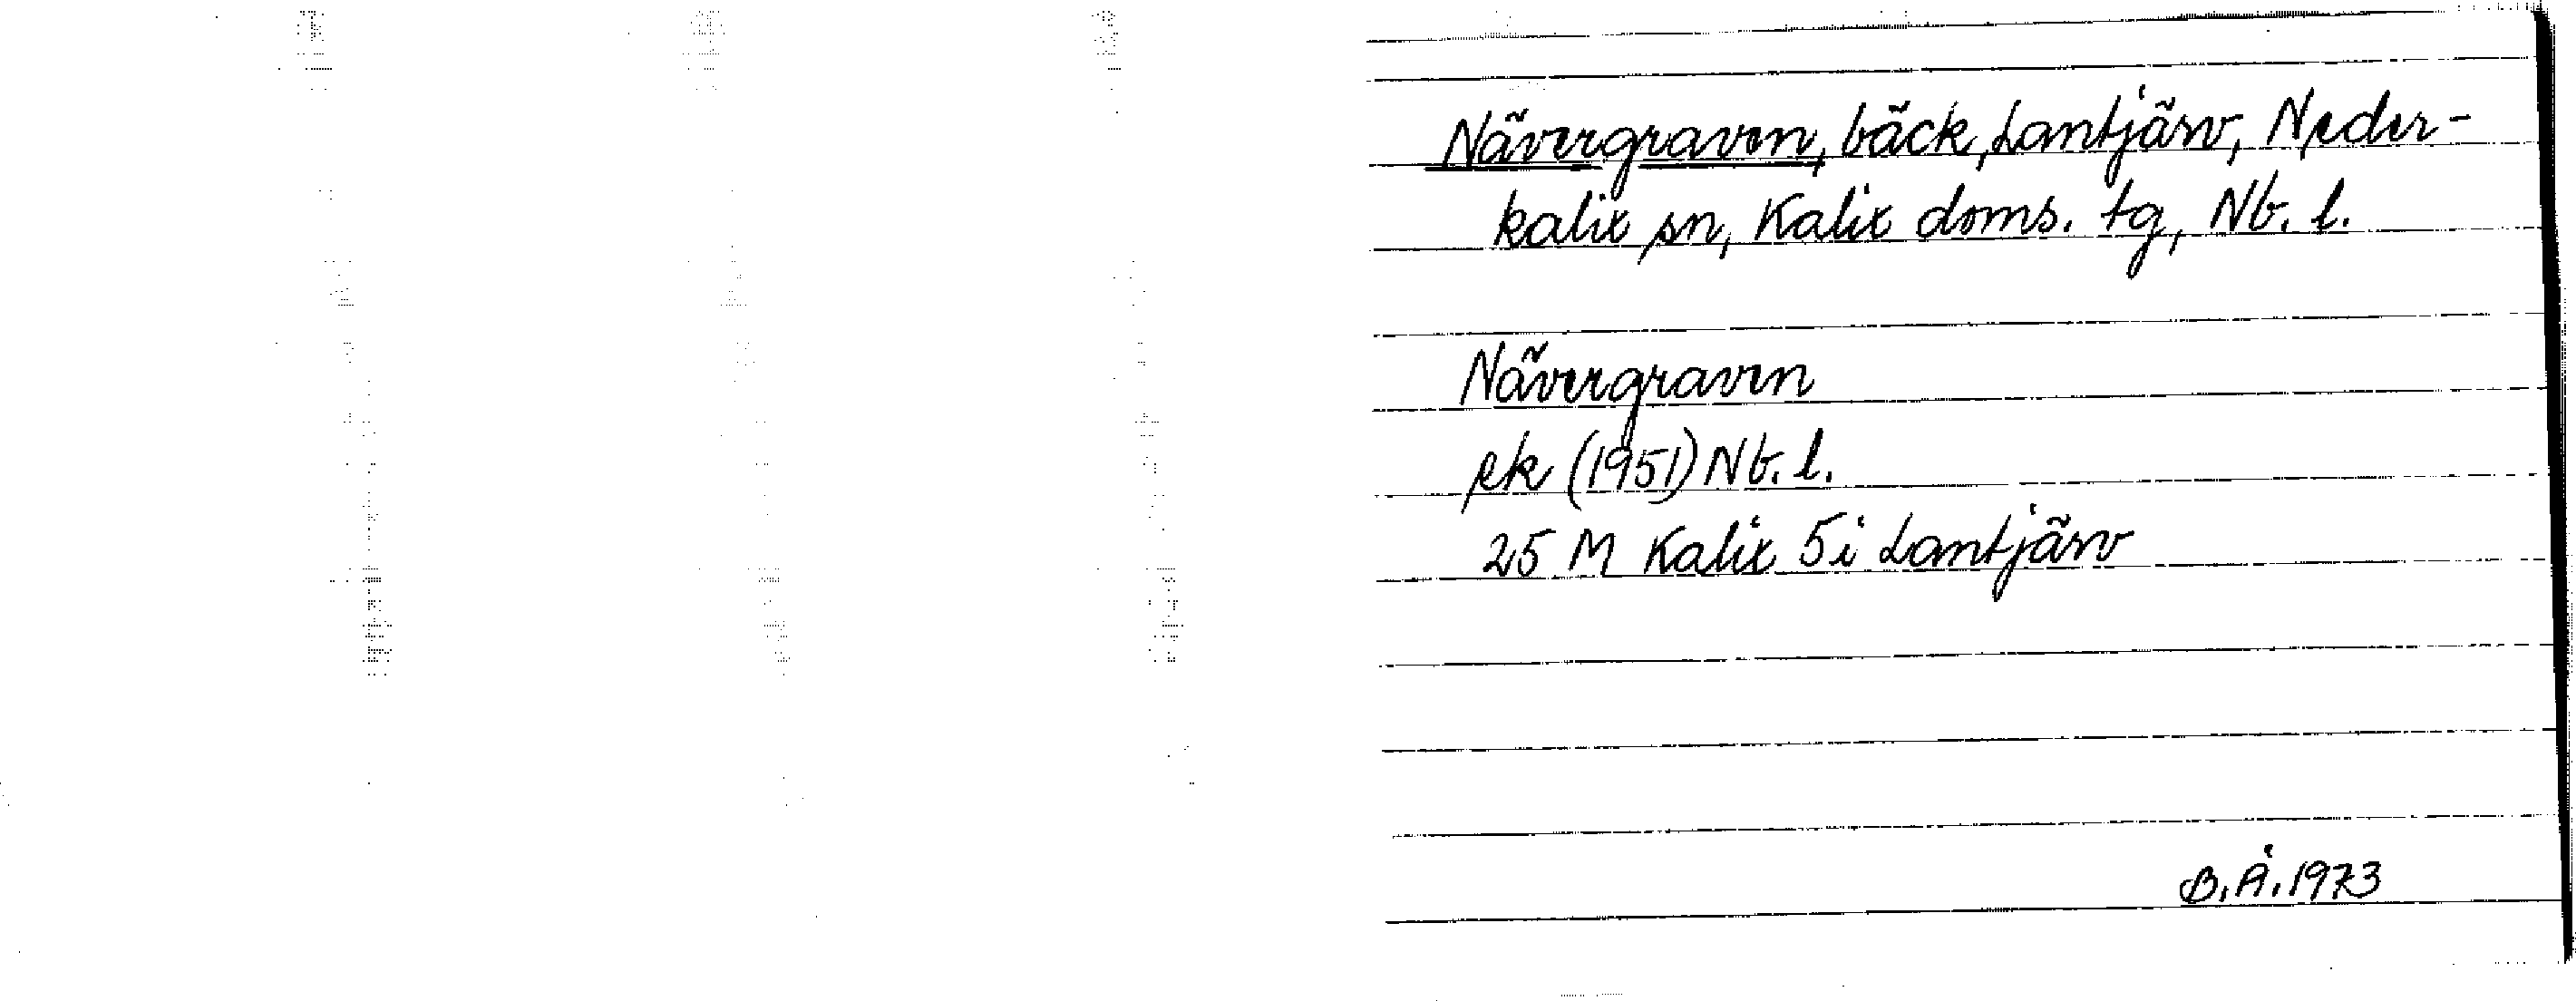 Nävergraven, bäck, Lantjärv, Neder-
kalix sn, Kalix doms. tg, Nb. l.
Nävergraven
ek (1951) Nb. l.
25 M Kalix 5i Lantjärv
B.Å. 1973